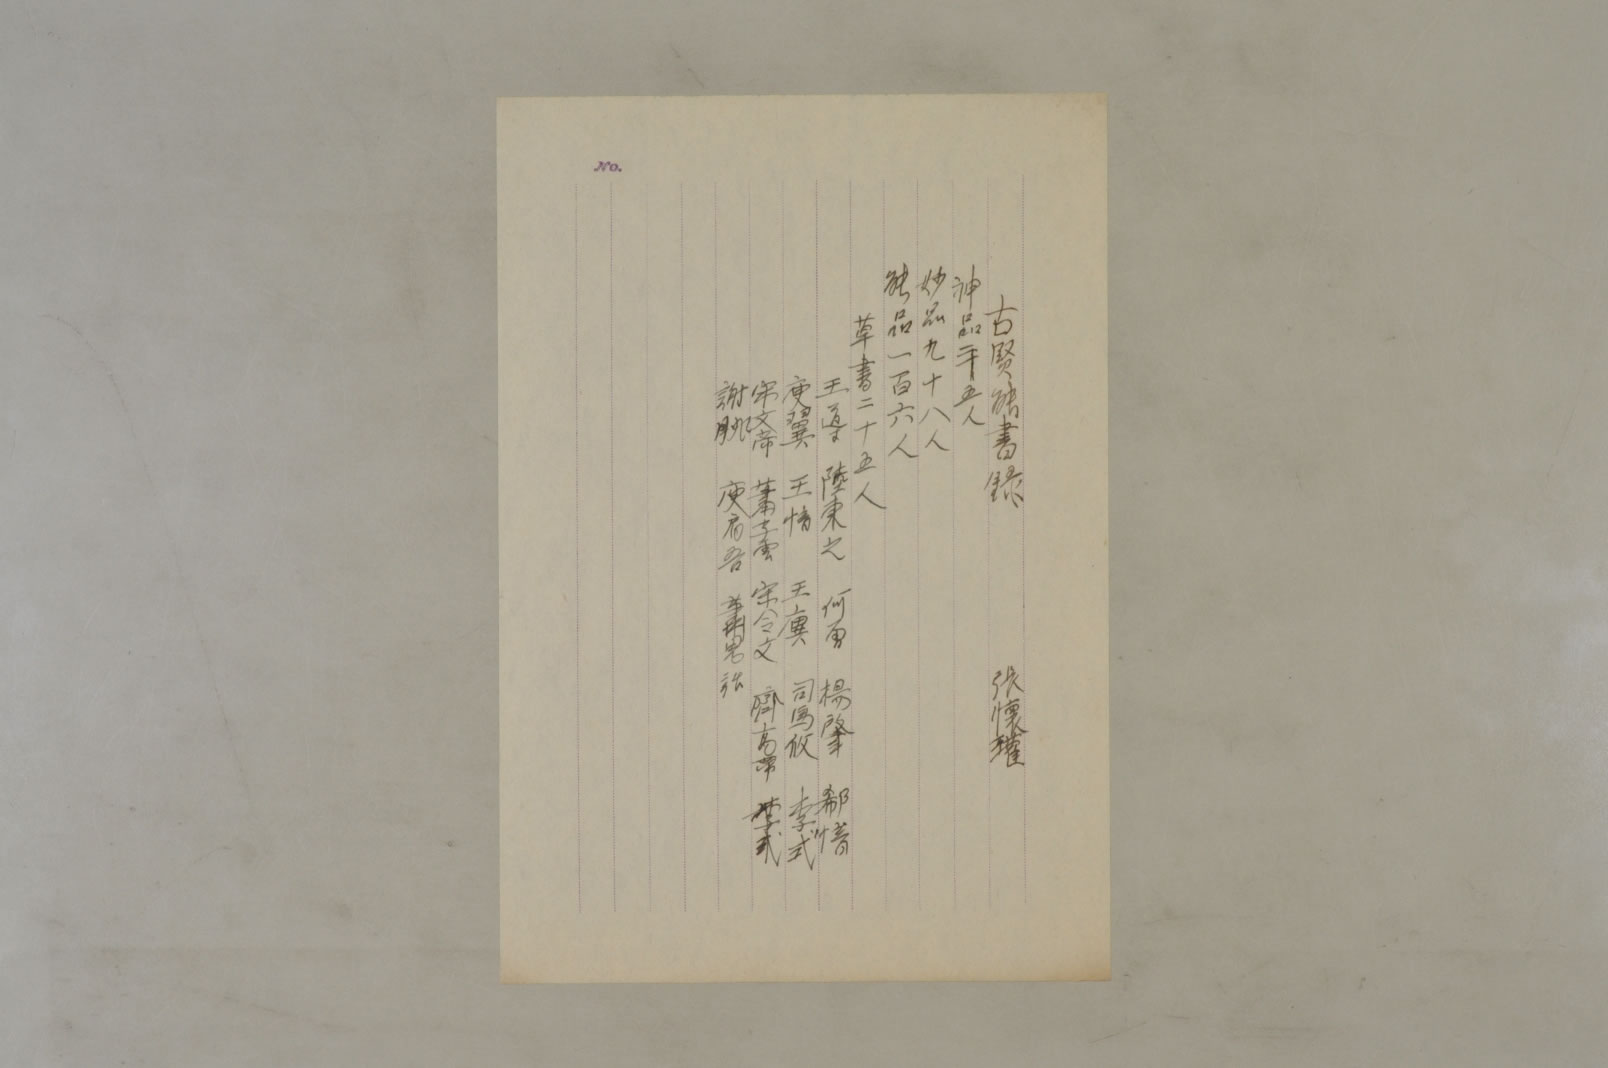 No.
古賢能書錄　張懷瓘
神品二十五人
妙品九十八人
能品一百六人
草書二十五人
王導　陸柬之　何曾　楊肇　郗愔
庾翼　王愔　王廙　司馬攸　李式
宋文帝　蕭子雲　宋令文　齊高帝　李式
謝朓　庾肩吾　蕭思話